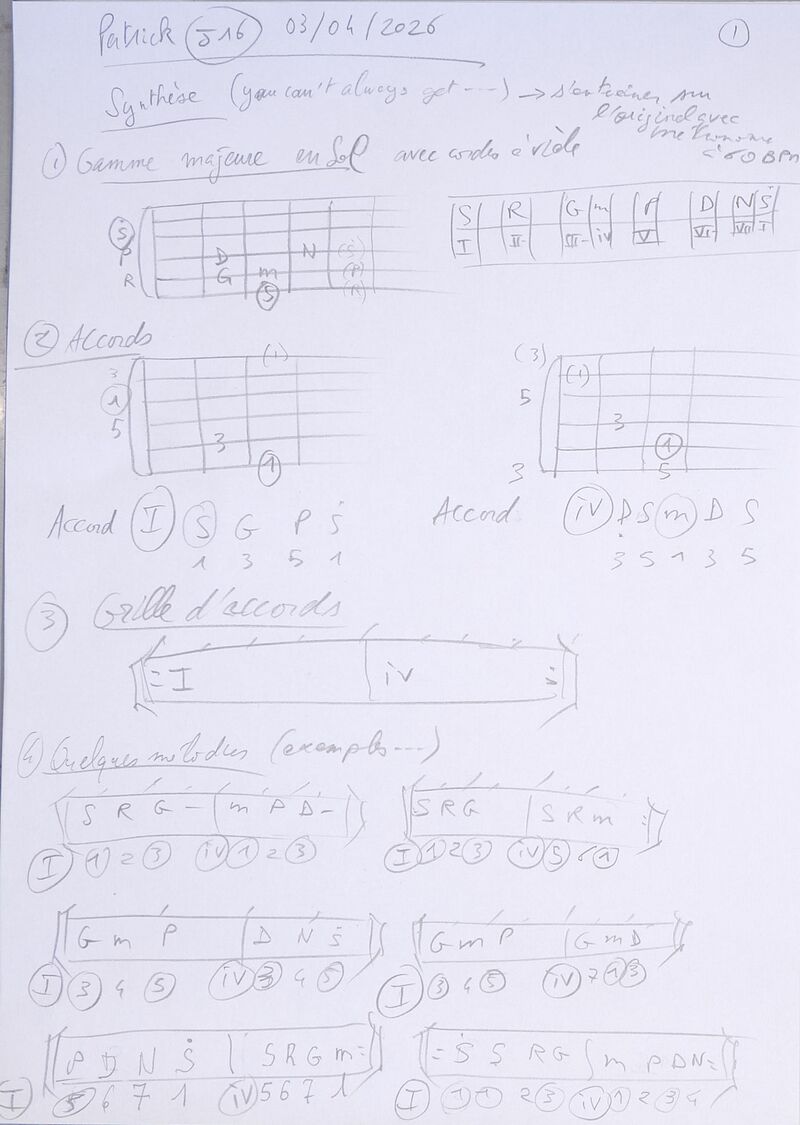 Patrick J16 03/04/2026 1
Synthèse (you can't always get ----) → s'entraîner sur
l'original avec
métronome
à 60 BPM
1 Gamme majeure en Sol avec cordes à vide
S R G m P D N Ṡ
I II III iv V VI VII I
Ṡ
P D N (Ṡ)
R G m (P)
S (R)
2 Accords
(1) (3)
3 (1)
1 5
5 3
3 1
1 3 5
Accord I S G P Ṡ
1 3 5 1
Accord iv Ḍ S m D S
3 5 1 3 5
3 Grille d'accords
I iv
4 Quelques mélodies (exemples ----)
S R G - m P D -
I 1 2 3 iv 1 2 3
S R G S R m
I 1 2 3 iv 5 6 1
G m P D N Ṡ
I 3 4 5 iv 3 4 5
G m P G m D
I 3 4 5 iv 7 1 3
P D N Ṡ S R G m
I 5 6 7 1 iv 5 6 7 1
Ṡ S R G m P D N
I 1 1 2 3 iv 1 2 3 4